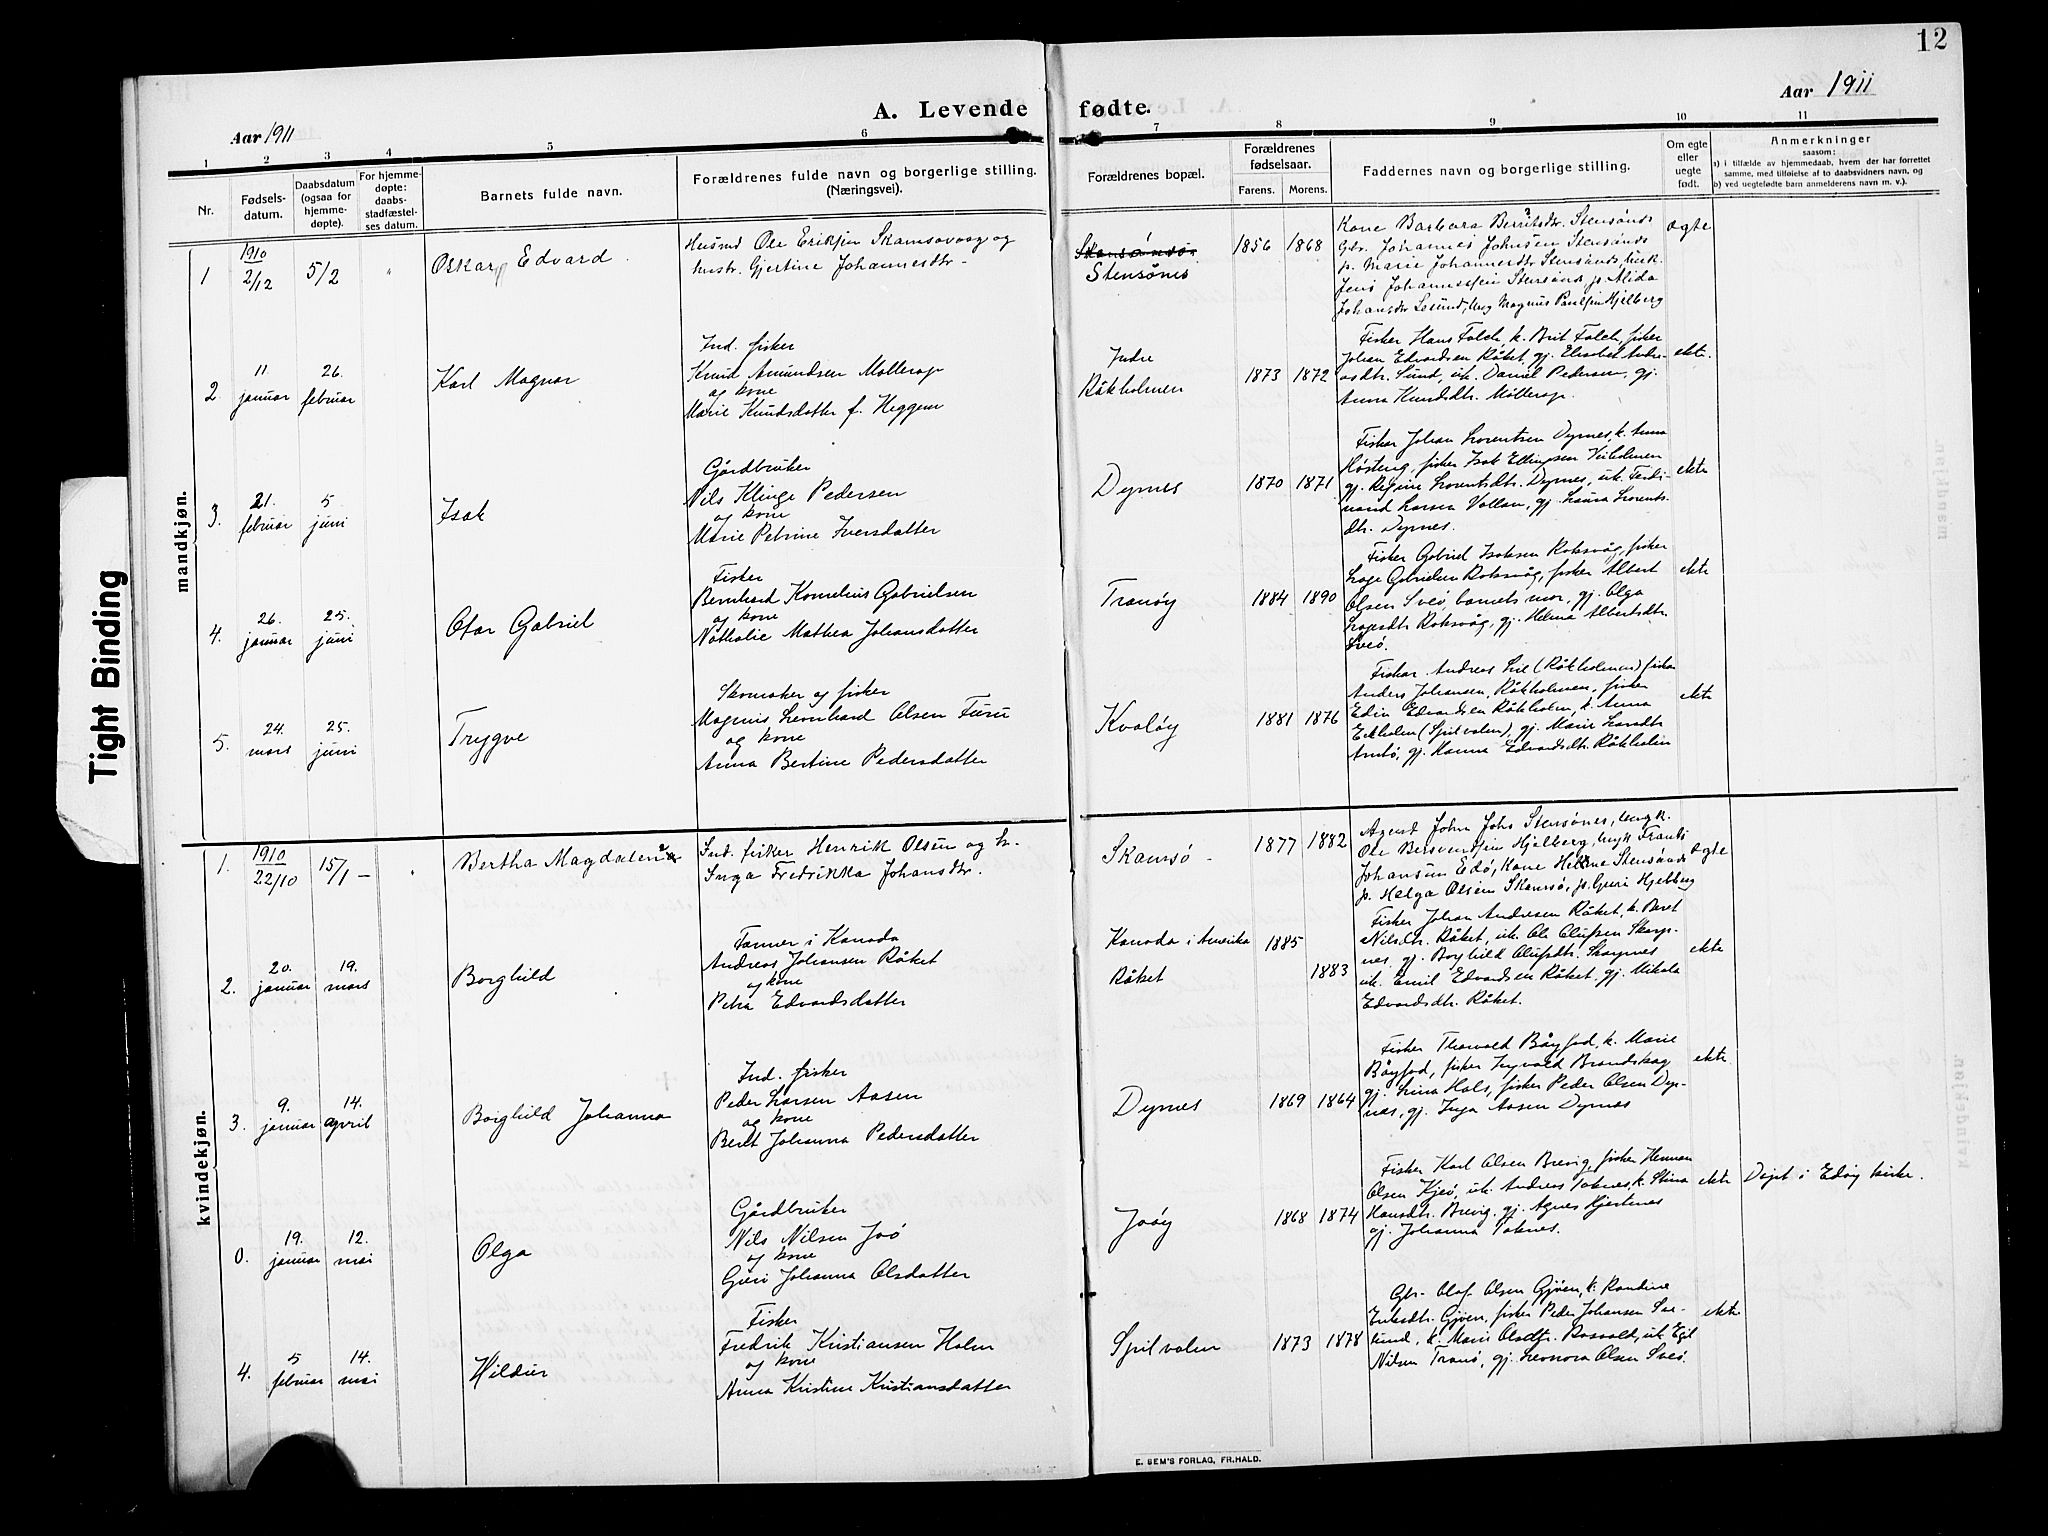 12
A. Levende fødte.
Aar 1911
Aar 1911
1 2 3 4 5 6 7 8 9 10 11
Nr.
Fødsels-
datum.
Daabsdatum
(ogsaa for
hjemme-
døpte).
For hjemme-
døpte:
daabs-
stadfæstel-
ses datum.
Barnets fulde navn.
Forældrenes fulde navn og borgerlige stilling.
(Næringsvei).
Forældrenes bopæl.
Forældrenes
fødselsaar.
Farens. Morens.
Faddernes navn og borgerlige stilling.
Om egte
eller
uegte
født.
Anmerkninger
saasom:
a) i tilfælde av hjemmedaab, hvem der har forrettet
samme, med tilføielse af to daabsvidners navn, og
b) ved uegtefødte barn anmelderens navn m. v.).
mandkjøn.
1
1910
2/12
5/2
"
Oskar Edvard
Husmd Ole Eriksen Skamsøvaag og
hustr. Gjertine Johannesdtr.
Stensønes
1856 1868
Kone Barbara Berritsdtr. Stensønds
Gbr. Johannes Johnsen Stensønds
p. Marie Johannesdtr Stensønds, ungk.
Jens Johannessen Stensønd, p. Alida
Johansdtr Lesund, ung Magnus Paulsen Hjelberg
ogte
2.
11.
januar
26.
februar
Karl Magnar
Ind. fisker
Knud Amundsen Møllerop
og kone
Marie Knudsdatter f. Heggem
Indre
Råkholmen
1873 1872
Fisker Hans Falch, k. Brit Falch, fisker
Johan Edvardsen Råket, gj. Elisabet Andre-
asdtr. Sund, uk. Daniel Pedersen, gj.
Anna Knudsdtr. Møllerop.
ekte.
3.
21.
februar
5
juni
Isak
Gårdbruker
Nils Klinge Pedersen
og kone
Marie Petrine Iversdatter
Dyrnes
1870 1871
Fisker Johan Lorentsen Dyrnes, k. Anna
Høsteng, fisker Isak Ellingsen Veiholmen
gj. Regine Lorentsdtr. Dyrnes, uk. Ferdi-
nand Larsen Vollan, gj. Laura Lorents-
dtr. Dyrnes.
ekte
4.
26.
januar
25.
juni
Otar Gabriel
Fisker
Bernhard Kornelius Gabrielsen
og kone
Nathalie Mathea Johansdatter
Tranøy
1884 1890
Fisker Gabriel Isaksen Roksvåg, fisker
Lage Gabrielsen Roksvåg, fisker Albert
Olsen Sveø, barnets mor, gj. Olga
Lagesdtr Roksvåg, gj. Helma Albertsdtr
Sveø.
ekte
5.
24.
mars
25.
juni
Trygve
Skomaker og fisker
Magnus Leonhard Olsen Furu
og kone
Anna Bertine Pedersdatter
Kvaløy
1881 1876
Fisker Andreas Lie (Råkholmen) fisker
Anders Johansen, Råkholmen, fisker
Edin Edvardsen Råkholm, k. Anna
Ekholen (Spilvalen), gj. Marie Larsdtr
Arntø, gj. Hanna Edvardsdtr. Råkholm
ekte
kvindekjøn.
1.
1910
22/10
15/1 –
"
Bertha Magdalena
Ind. fisker Henrik Olsen og h.
Inga Fredrikka Johansdtr.
Skamsø –
1877 1882
Agent John Johs Stensønes, ungk.
Ole Bersventsen Hjelberg, ungk Frants
Johansen Edø, kone Heline Stensønds
p. Helga Olsen Skamsø, p. Guri Hjelberg
ogte
2.
20.
januar
19.
mars
Borghild
Farmer i Kanada
Andreas Johansen Råket
og kone
Petra Edvardsdatter
Kanada i Amerika
Råket
1885
1883
Fisker Johan Andresen Råket, k. Beret
Nilsdtr. Råket, uk. Ole Olufsen Skarp-
nes, gj. Borghild Olufsdtr. Skarpnes
uk. Emil Edvardsen Råket, gj. Mikala
Edvardsdtr. Råket.
ekte
3.
9.
januar
14.
april
Borghild Johanna
Ind. fisker
Peder Larsen Aasen
og kone
Beret Johanna Pedersdatter
Dyrnes
1869 1864
Fisker Thorvald Båsfjod, k. Marie
Båsfjod, fisker Ingvald Brandskag
gj. Lina Hals, fisker Peder Olsen Dyr-
nes, gj. Inga Aasen Dyrnes
ekte
0.
19.
januar
12.
mai
Olga
Gårdbruker
Nils Nilsen Joø
og kone
Guri Johanna Olsdatter
Joøy
1868 1874
Fisker Karl Olsen Brevig, fisker Herman
Olsen Kjeø, uk. Andreas Taknes, k. Stina
Hansdtr. Brevig, gj. Agnes Hjertenes
gj. Johanna Taknes.
ekte
Døpt i Edøy kirke.
4.
5
februar
14.
mai
Hildur
Fisker
Fredrik Kristiansen Holm
og kone
Anna Kristine Kristiansdatter
Spilvalen
1873 1878
Gbr. Olaf Olsen Gjøen, k. Randine
Eriksdtr. Gjøen, fisker Peder Johansen Sør-
sund, k. Marie Olsdtr. Rosvold, uk. Egil
Nilsen Tranø, gj. Leonora Olsen Sveø.
ekte
E. SEM'S FORLAG, FR.HALD.
Tight Binding